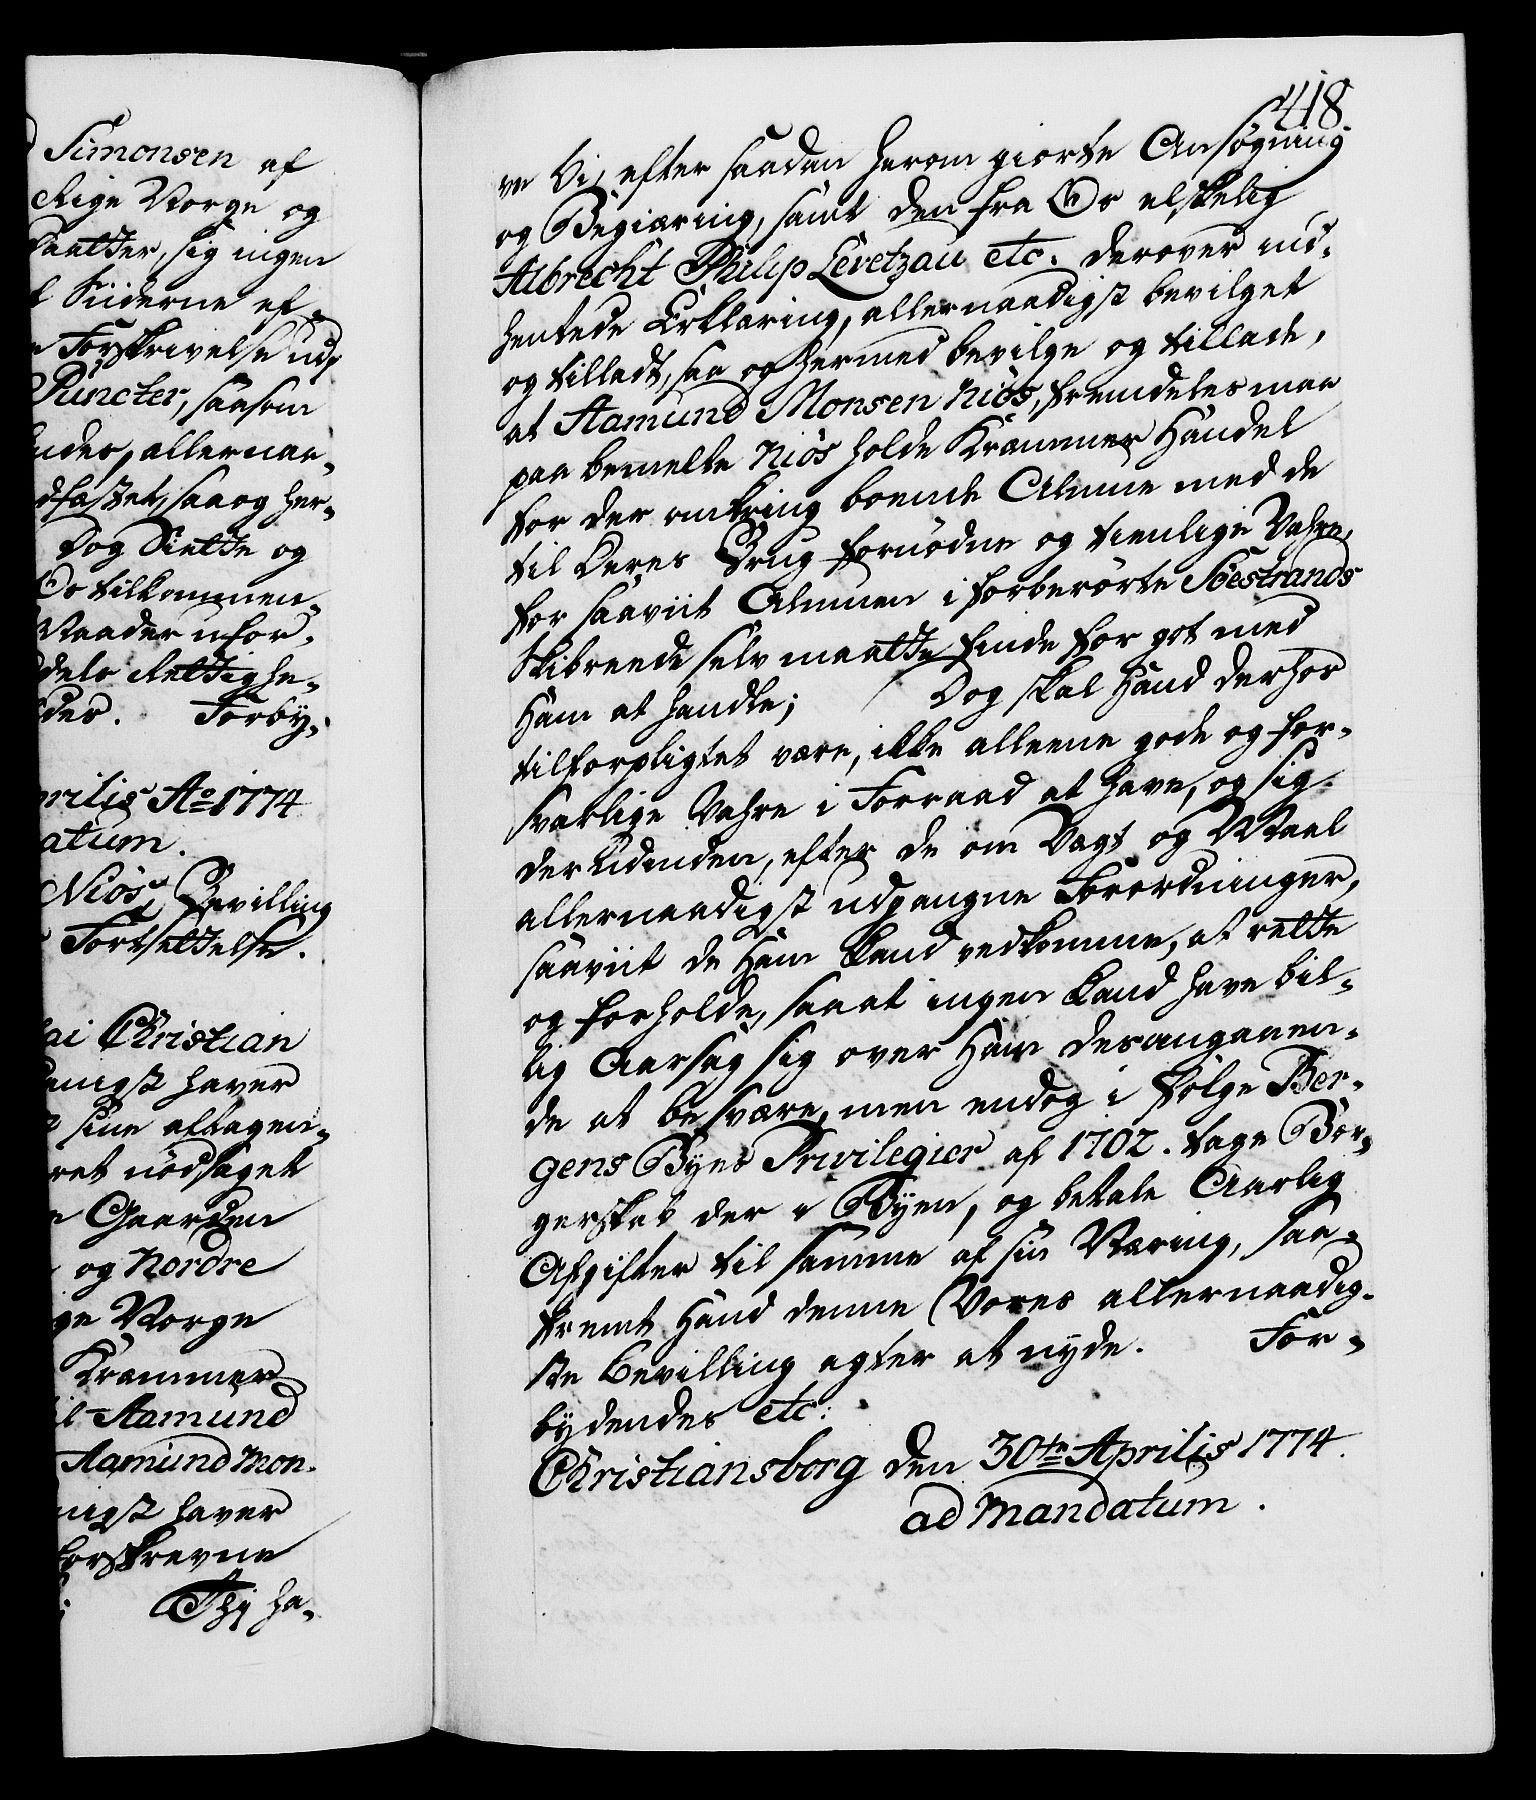 Simonsen af
Rige Norge og
saatter, sig ingen
Siiderne ef-
Forskrivelse ud
Puncter, saasom
ndes, allernaa-
dfæstet, saa og her-
Dog Siette og
Os tilkommen-
Naader ufor-
dels Rettighe-
des. Forby-
prilis Ao 1774
atum.
Niøs, Bevilling
Fortsettelse.
ai Christian
danigst haver
sine aftagen-
ret nødsaget
Gaarden
og Nordre
ge Norge
Kræmmer
il Aamund
Aamund Mon-
nigst haver
forskrevne
Thj ha-
418
ve Vi, efter saadan herom giorte Ansøgning
og Begiæring, samt den fra Os elskelig
Albrecht Philip Levetzau etc. derover ind-
hentede Erklæring, allernaadigst bevilget
og tilladt, saa og hermed bevilge og tillade,
at Aamund Monsen Niøs, fremdeles maa
paa bemelte Niøs holde Kræmmer Handel
for der omkring boende Almue med de
til deres Brug fornødne og tienlige Vahre,
for saaviit Almuen i forberørte Søestrands
Skibreede selv maatte finde for got med
Ham at handle; Dog skal Hand derhos
tilforpligtet være, ikke alleene gode og for-
svarlige Vahre i Forraad at have, og sig
der udinden, efter de om Vægt og Maal
allernaadigst udgangne Forordninger,
saaviit de Ham kand vedkomme, at rette
og forholde, saa at ingen kand have bil-
lig Aarsag sig over Ham desangaaen-
de at besvære, men endog i følge Ber-
gens Byes Privilegier af 1702. tage Bor-
gerskab der i Byen, og betale Aarlig
Afgifter til samme af sin Næring, saa-
fremt Hand denne Vores allernaadig-
ste Bevilling agter at nyde. For-
bydendes etc.
Christiansborg den 30te Aprilis 1774.
ad Mandatum.